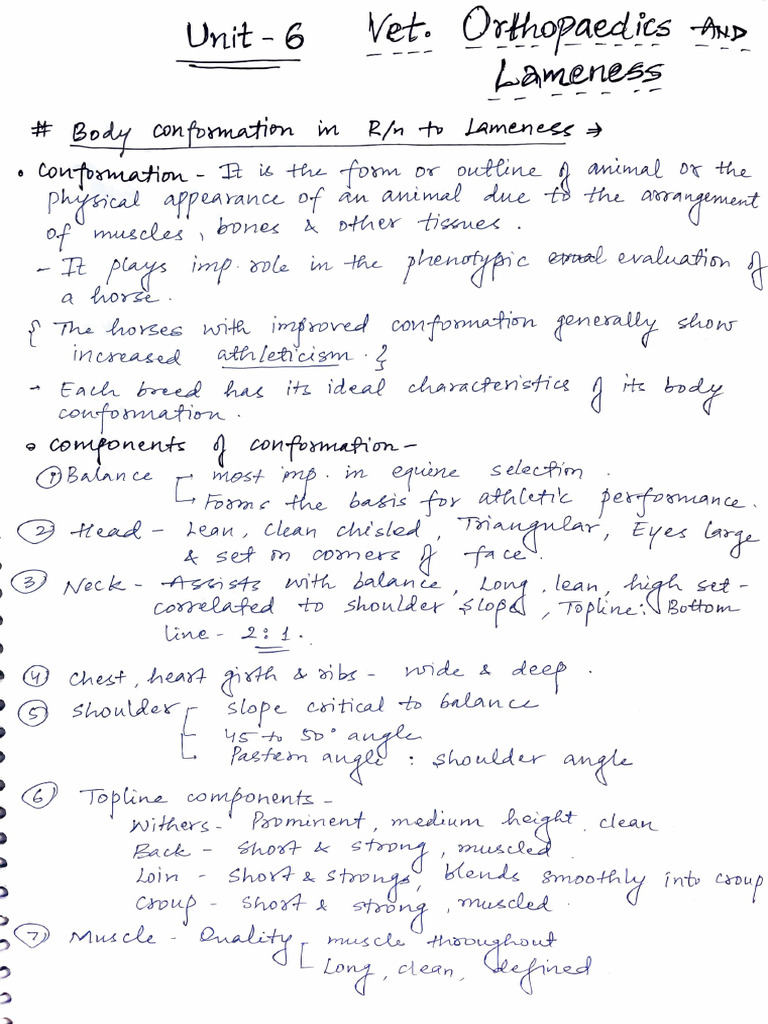 Unit - 6 Vet. Orthopaedics AND
Lameness
# Body conformation in R/n to Lameness →
• Conformation - It is the form or outline of animal or the
physical appearance of an animal due to the arrangement
of muscles, bones & other tissues.
- It plays imp. role in the phenotypic evaluation of
a horse.
{ The horses with improved conformation generally show
increased athleticism. }
- Each breed has its ideal characteristics of its body
conformation.
• Components of conformation -
① Balance - most imp. in equine selection.
Forms the basis for athletic performance.
② Head - Lean, clean chisled, Triangular, Eyes large
& set on corners of face.
③ Neck - Assists with balance, Long, lean, high set -
correlated to shoulder slope, Topline: Bottom
line - 2:1.
④ Chest, heart girth & ribs - wide & deep.
⑤ Shoulder - slope critical to balance
45 to 50° angle
Pastern angle : shoulder angle
⑥ Topline components -
Withers - Prominent, medium height, clean
Back - Short & strong, muscled.
Loin - Short & strongs, blends smoothly into croup
Croup - Short & strong, muscled.
⑦ Muscle - Quality - muscle throughout
Long, clean, defined